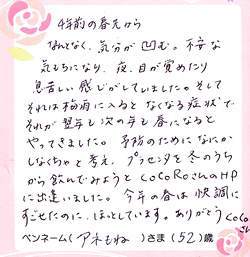 4年前の春先から
なんとなく、気分が凹む。不安な
気もちになり、夜、目が覚めたり
息苦しい感じがしていました。そして
それは梅雨に入るとなくなる症状で
それが翌年も次の年も春になると
やってきました。予防のためになにか
しなくちゃと考え、プラセンタを冬のうち
から飲んでみようとCoCoRoさんのHP
に出逢いました。今年の春は快調に
すごせたのに、ほっとしています。ありがとうCoCo
ペンネーム(アネモネ)さま(52)歳